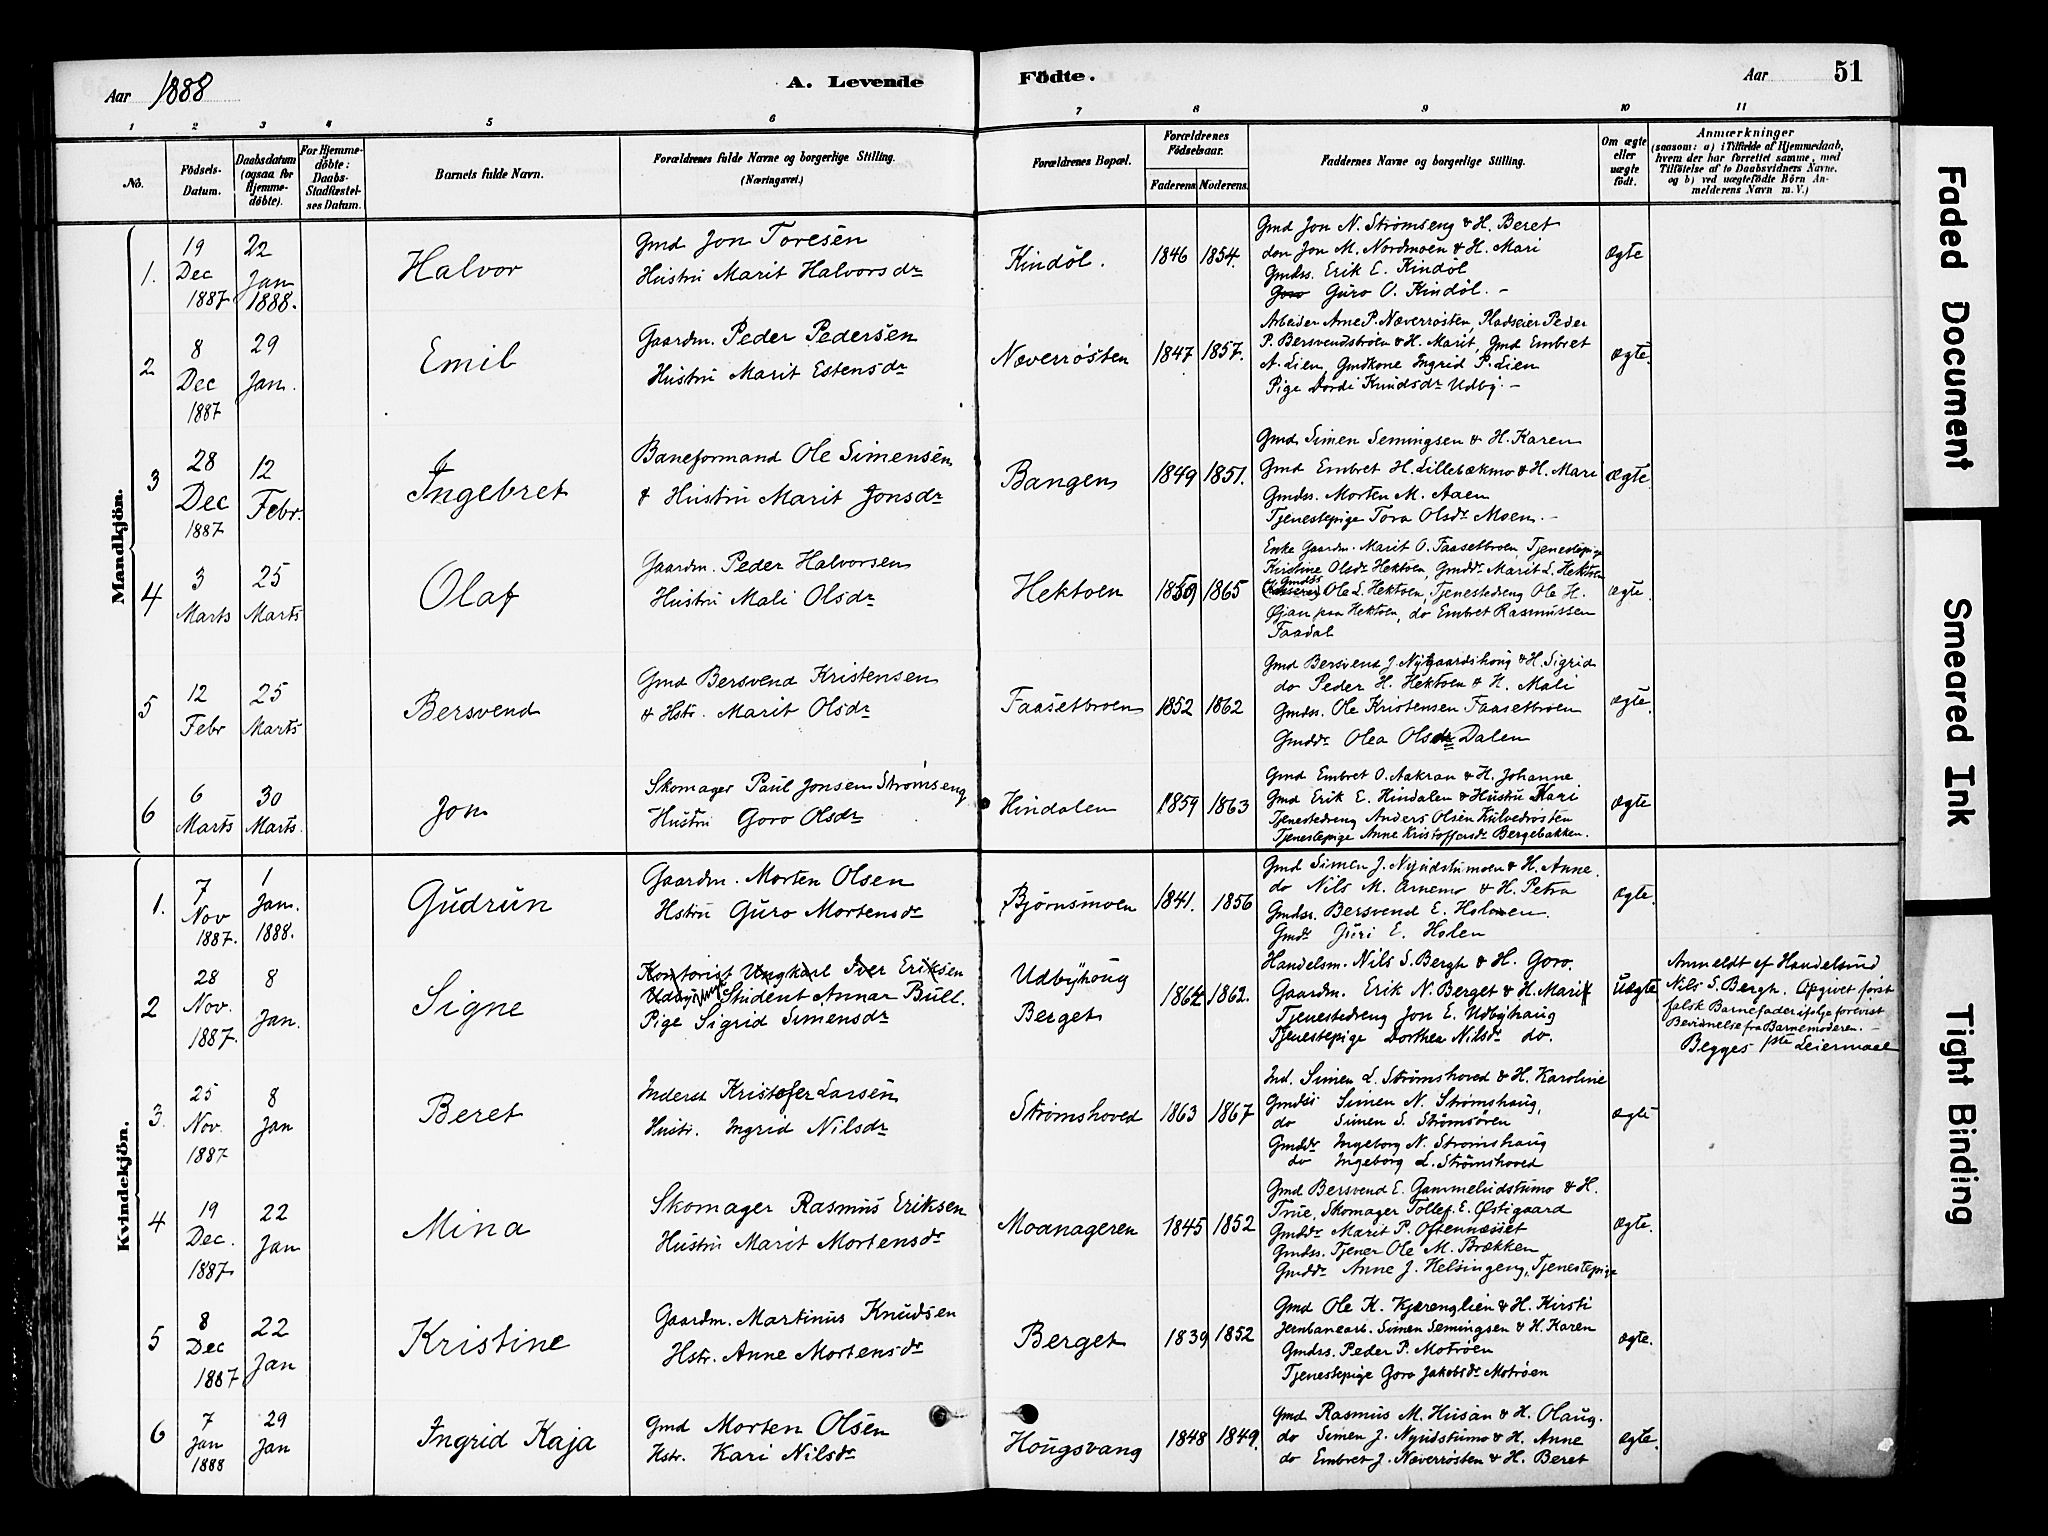 Aar 1888
A. Levende
Födte.
Aar
51
1 2 3 4 5 6 7 8 9 10 11
No.
Födsels-
Datum.
Daabsdatum
(ogsaa for
Hjemme-
döbte).
For Hjemme-
döbte:
Daabs-
Stadfæstel-
ses Datum.
Barnets fulde Navn.
Forældrenes fulde Navne og borgerlige Stilling.
(Næringsvei.)
Forældrenes Bopæl.
Forældrenes
Födselsaar.
Faderens. Moderens.
Faddernes Navne og borgerlige Stilling.
Om ægte
eller
uægte
födt.
Anmærkninger
(saasom: a) i Tilfælde af Hjemmedaab,
hvem der har forrettet samme, med
Tilföielse af to Daabsvidners Navne,
og b) ved uægtefödte Börn An-
melderens Navn m. V.)
Mandkjön.
1.
19
Dec
1887
22
Jan
1888.
Halvor
Gmd Jon Toresen
Hustru Marit Halvorsdr
Kindöl.
1846 1854.
Gmd Jon N. Strømseng & H. Beret
don Jon M. Nordmoen & H. Mari
Gmdss. Erik E. Kindöl
Goro Guro O. Kindöl. -
ægte
2
8
Dec
1887
29
Jan.
Emil
Gaardm. Peder Pedersen
Hustru Marit Estensdr
Næverrösten
1847 1857.
Arbeider Arne P. Næverrösten, Pladseier Peder
P. Bersvendströen & H. Marit, Gmd Embret
A. Lien, Gmdkone Ingrid P. Lien
Pige Dordi Knudsdr Udby. -
ægte.
3
28
Dec
1887
12
Febr.
Ingebret
Baneformand Ole Simensen
& Hustru Marit Jonsdr
Bangen
1849 1851.
Gmd Simen Semingsen & H. Karen
Gmd Embret H. Lillebækmo & H. Mari
Gmdss. Morten M. Aaen
Tjenestepige Tora Olsdr Moen. -
ægte.
4
3
Marts
25
Marts
Olaf
Gaardm. Peder Halvorsen
Hustru Mali Olsdr
Hektoen
1859 1865
Enke Gaardm. Marit O. Faasetbroen, Tjenestepige
Kirstine Olsdr Hektoen, Gmddr Marit L. Hektoen
Gmdss
Ole L. Hektoen, Tjenestedreng Ole H.
Gjan paa Hektoen, do Embret Rasmussen
Faadal
ægte.
5
12
Febr
25
Marts
Bersvend
Gmd Bersvend Kristensen
& Hstr. Marit Olsdr
Faasetbroen
1852 1862
Gmd Bersvend J. Nygaardshoug & H. Sigrid
do Peder H. Hektoen & H. Mali
Gmdss. Ole Kristensen Faasetbroen
Gmddr Olea Olsdr Dalen
ægte.
6
6
Marts
30
Marts.
Jon
Skomager Paul Jonsen Strømseng
Hustru Goro Olsdr
Hindalen
1859 1863
Gmd Embret O. Aakran & H. Johanne
Gmd Erik E. Hindalen & Hustru Kari
Tjenestedreng Anders Olsen Kulvedrösten
Tjenestepige Anne Kristoffersdr Bergebakken.
ægte
Kvindekjön.
1.
7
Nov
1887.
1
Jan.
1888.
Gudrun
Gaardm. Morten Olsen
Hstru Guro Mortensdr
Björnsmoen
1841. 1856
Gmd Simen J. Nyudstumoen & H. Anne.
do Nils M. Arnemo & H. Petra
Gmdss. Bersvend E. Holmen.
Gmdr Guri E. Holen
ægte.
2
28
Nov.
1887.
8
Jan.
Signe
Kontorist Ungkarl Iver Eriksen
Udbyhaug Student Annar Bull.
Pige Sigrid Simensdr
Udbyhoug
Berget
1864 1862.
Handelsm. Nils S. Bergh & H. Goro.
Gaardm. Erik N. Berget & H. Marit
Tjenestedreng Jon E. Udbyhaug
Tjenestepige Dorthea Nilsdr do.
Uægte
Anmeldt af Handelsmd
Nils S. Bergh. Opgivet først
falsk Barnefader ifølge forevist
Bevidnelse fra Barnemoderen. -
Begges 1ste Leiermaal
3.
25
Nov.
1887
8
Jan
Beret
Inderst Kristofer Larsen
Hustr. Ingrid Nilsdr
Strømshoved
1863 1867
Ind. Simen L. Strømshoved & H. Karoline
Gmdss Simen N. Strømshaug,
do Simen S. Strømsören
Gmddr Ingeborg N. Strømshaug
do Ingeborg L. Strømshoved
ægte
4
19
Dec.
1887.
22
Jan
Mina
Skomager Rasmus Eriksen
Hustru Marit Mortensdr
Moanageren
1845 1852
Gmd Bersvend E. Gammeludstumo & H.
True, Skomager Tollef E. Østigaard
Gmddr Marit P. Oftennæsset
Gmdss. Tjener Ole M. Brækken
Gmddr Anne J. Helsingeng, Tjenestepige
ægte.
5
8
Dec
1887
22
Jan
Kristine
Gaardm. Martinus Knudsen
Hstr. Anne Mortensdr
Berget
1839 1852
Gmd Ole K. Kjærenglien & H. Kirsti
Jernbanearb. Simen Semingsen & H. Karen
Gmdss. Peder P. Motrøen
Tjenestepige Goro Jakobsdr Motrøen
ægte.
6
7
Jan
1888
29
Jan
Ingrid Kaja
Gmd Morten Olsen
Hstr. Kari Nilsdr
Hougsvang
1848 1849.
Gmd Rasmus M. Husan & H. Olaug.
do Simen J. Nyudstumo & H. Anne
do Embret J. Næverrösten & H. Beret
ægte.
Faded Document
Smeared Ink
Tight Binding